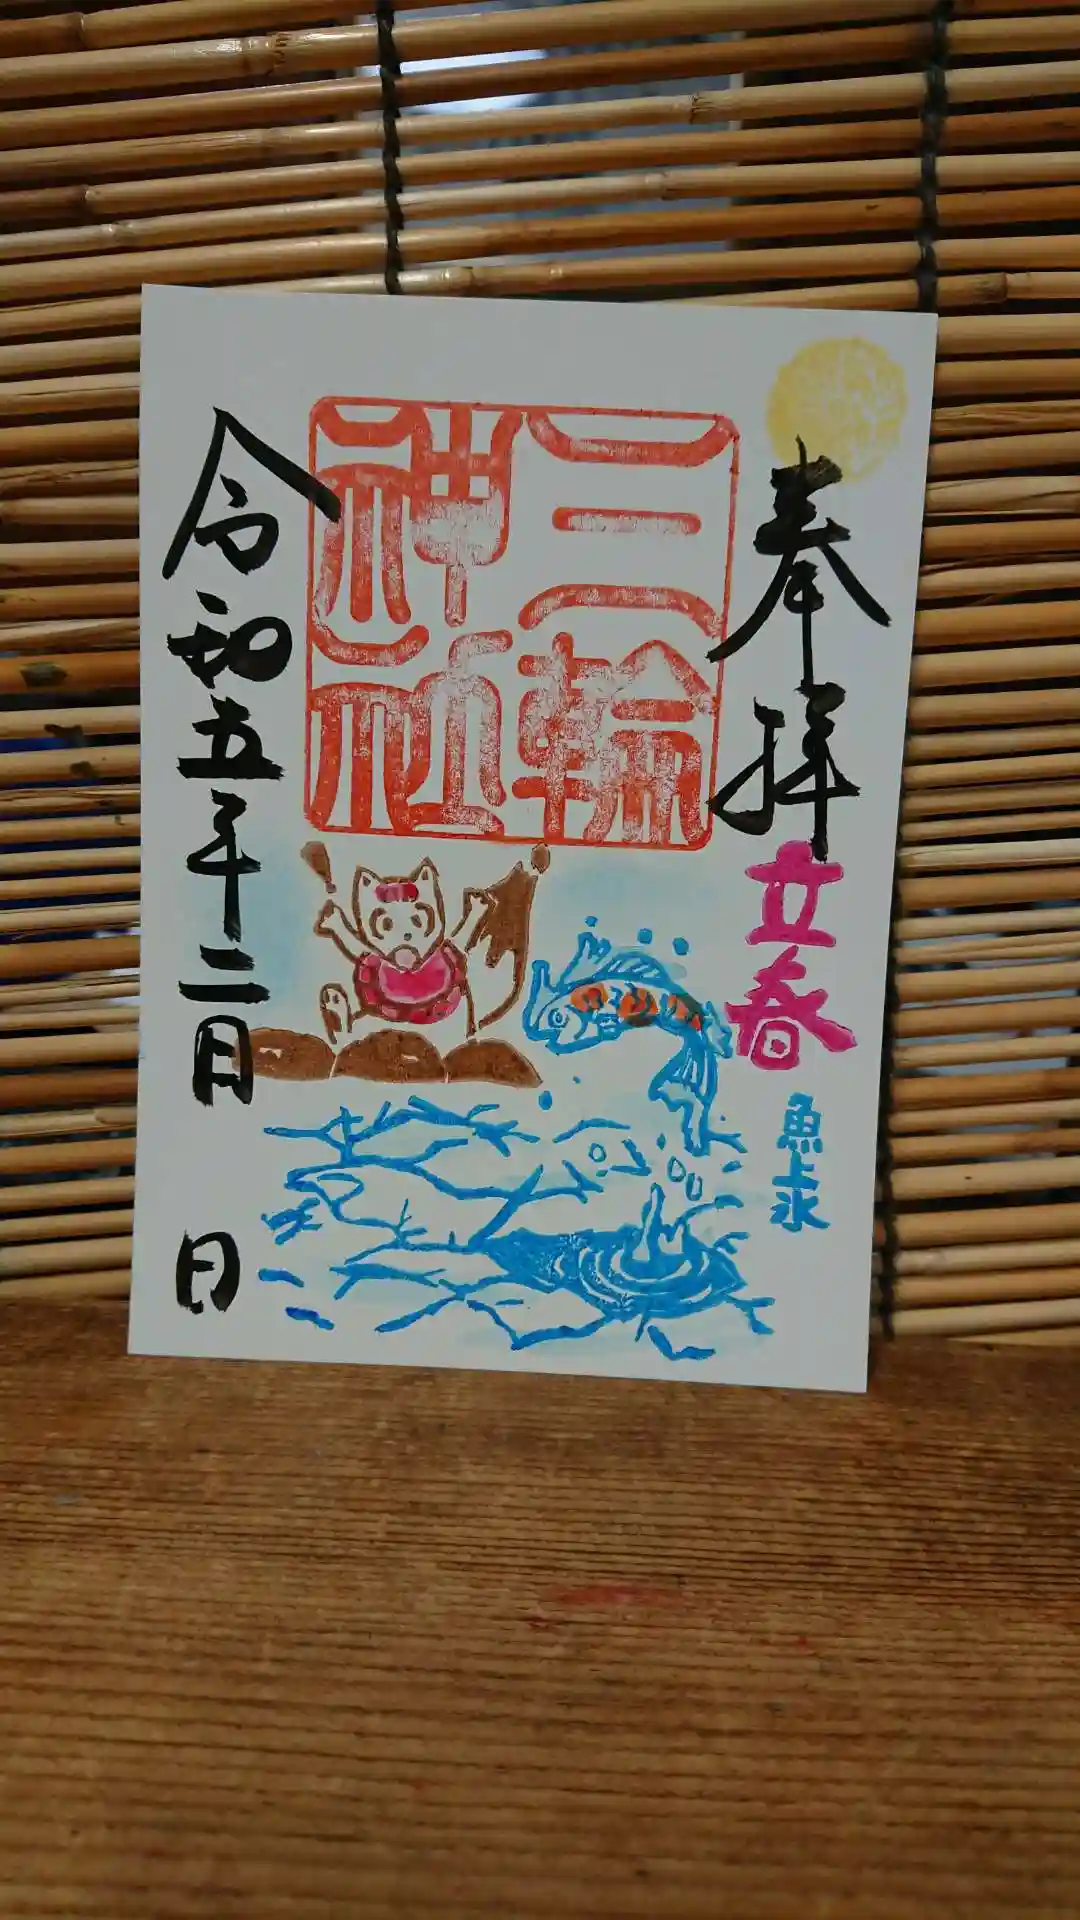 奉拝
立春
魚上氷
三輪
神社
令和五年二月
日